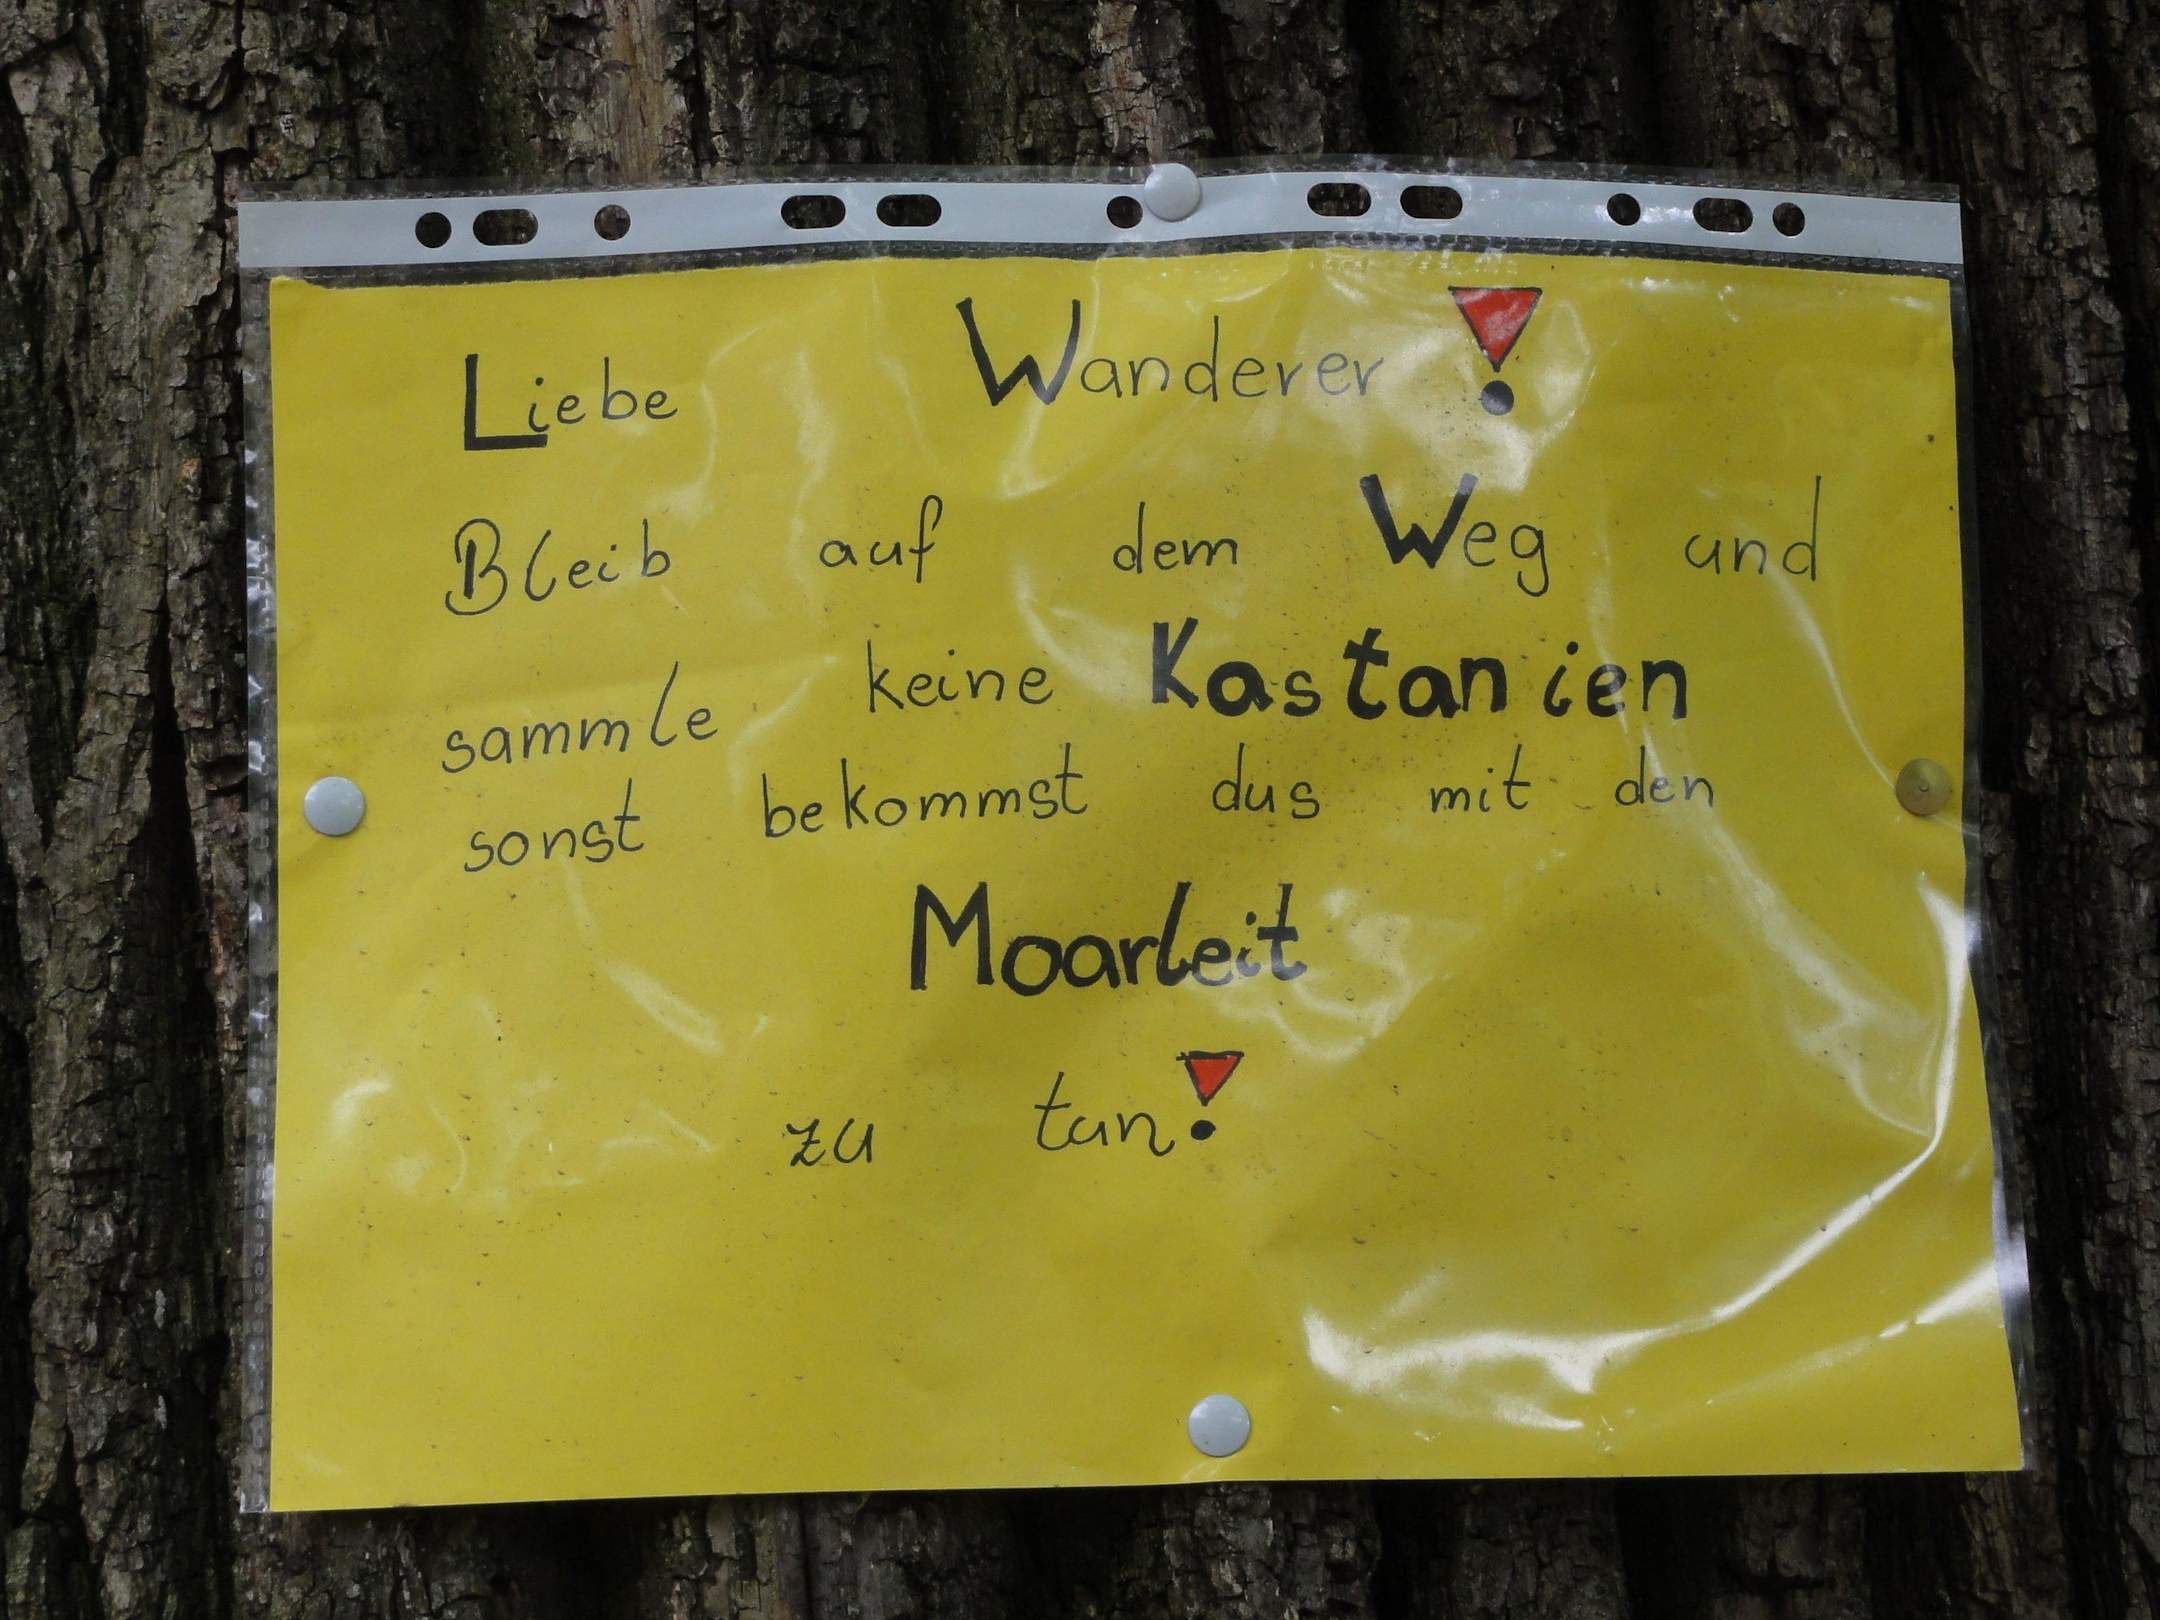 Liebe Wanderer!
Bleib auf dem Weg und
sammle keine Kastanien
sonst bekommst dus mit den
Moarleit
zu tun!